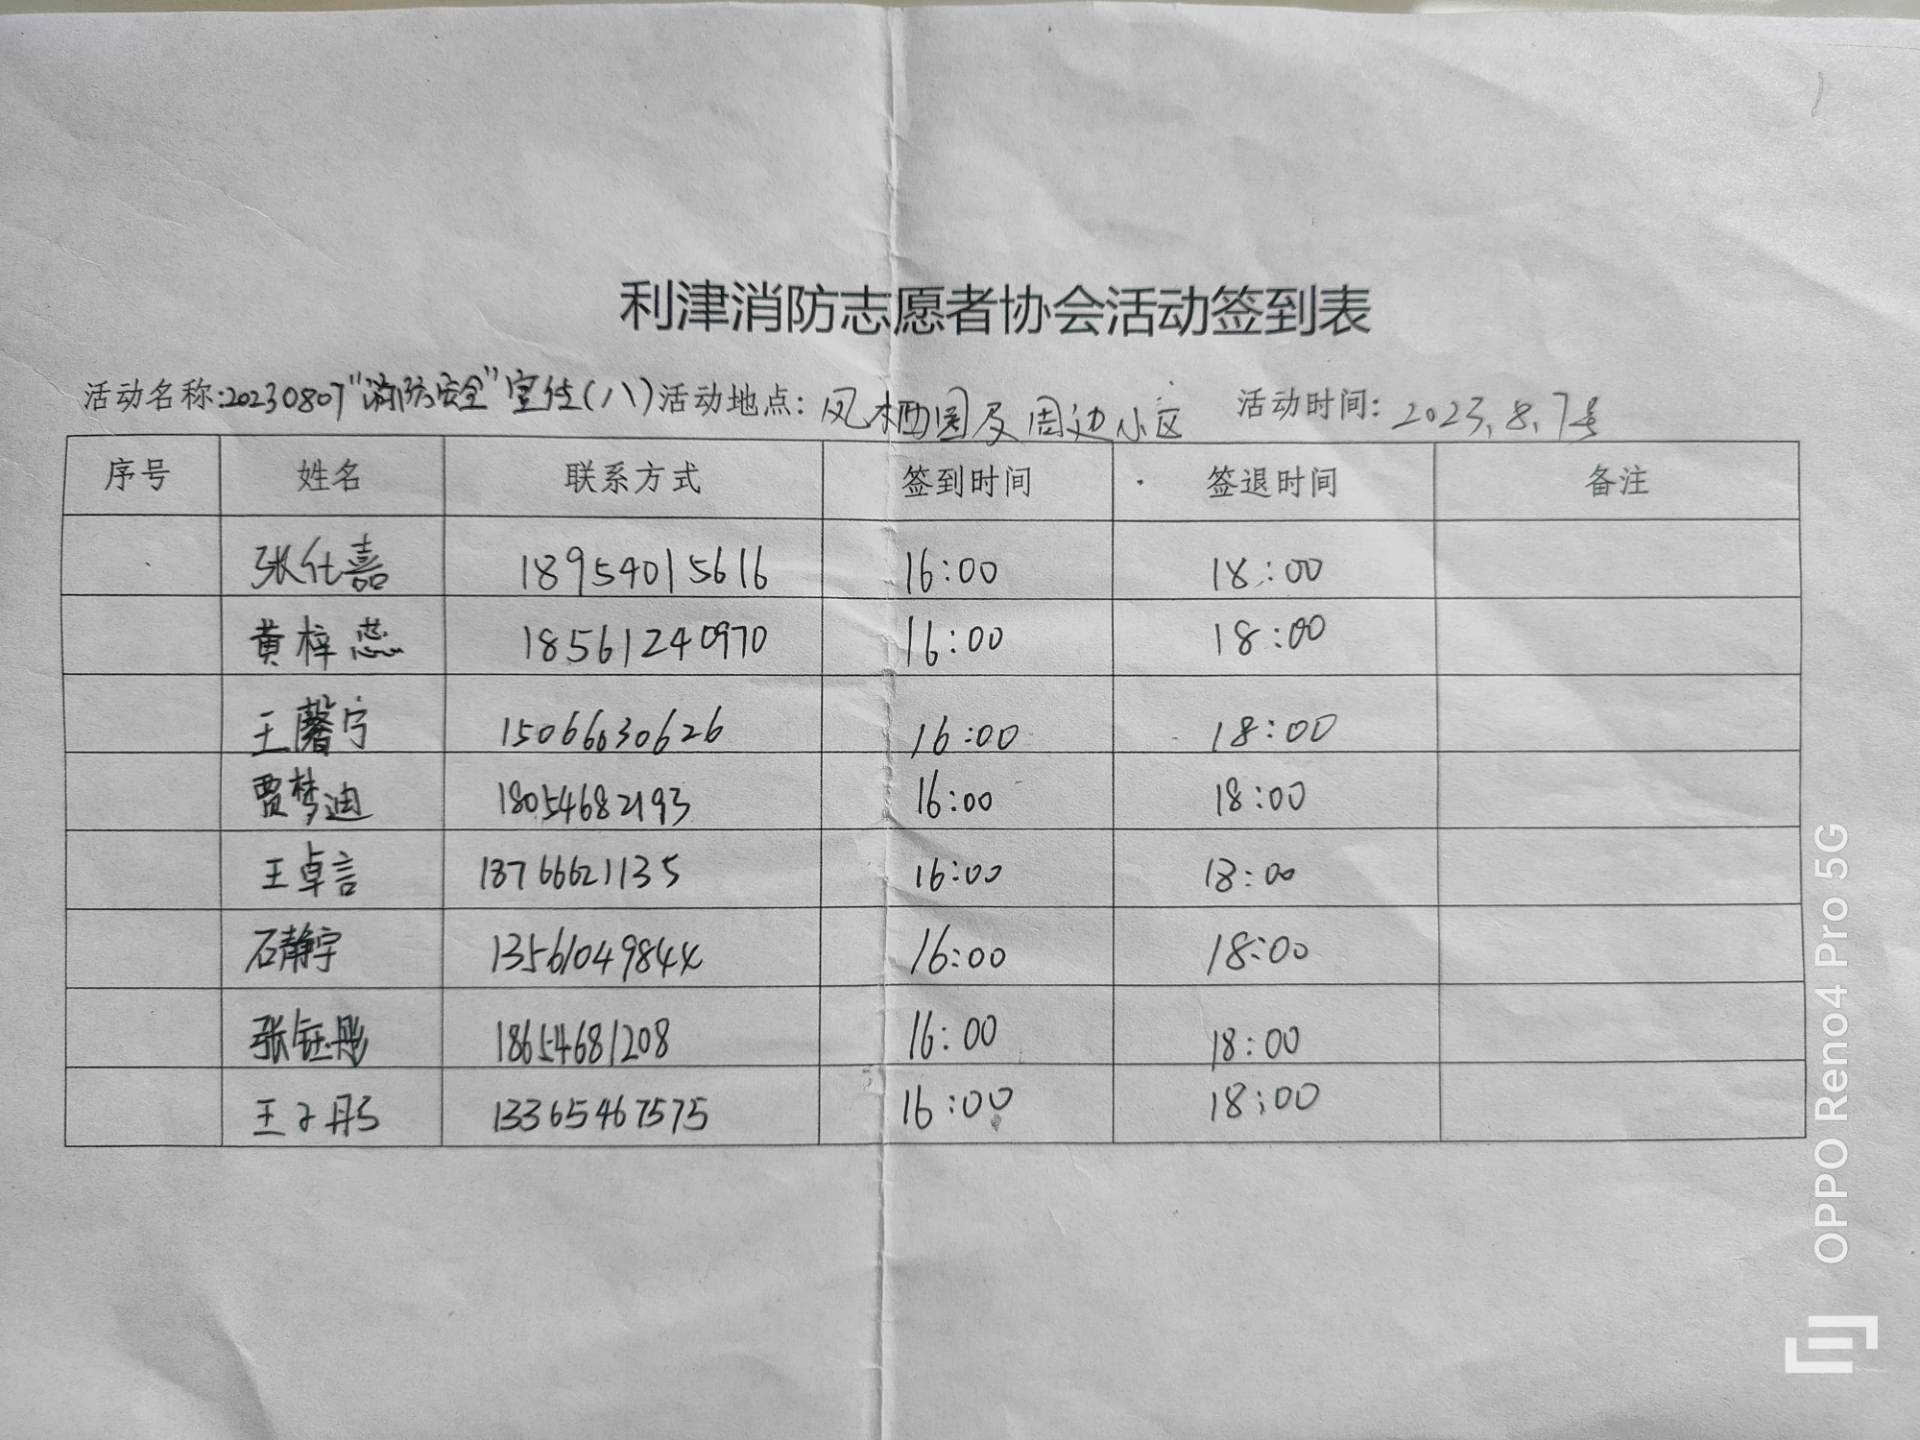 利津消防志愿者协会活动签到表
活动名称:20230807"消防安全"宣传(八)活动地点:凤栖园及周边小区 活动时间:2023.8.7号
序号 姓名 联系方式 签到时间 签退时间 备注
张仕嘉 18954015616 16:00 18:00
黄梓蕊 18561240970 16:00 18:00
王馨宁 15066630626 16:00 18:00
贾梦迪 18054682193 16:00 18:00
王卓言 18766621135 16:00 18:00
石静宇 13561049844 16:00 18:00
张钰彤 18654681208 16:00 18:00
王子丹 13365467575 16:00 18:00
OPPO Reno4 Pro 5G